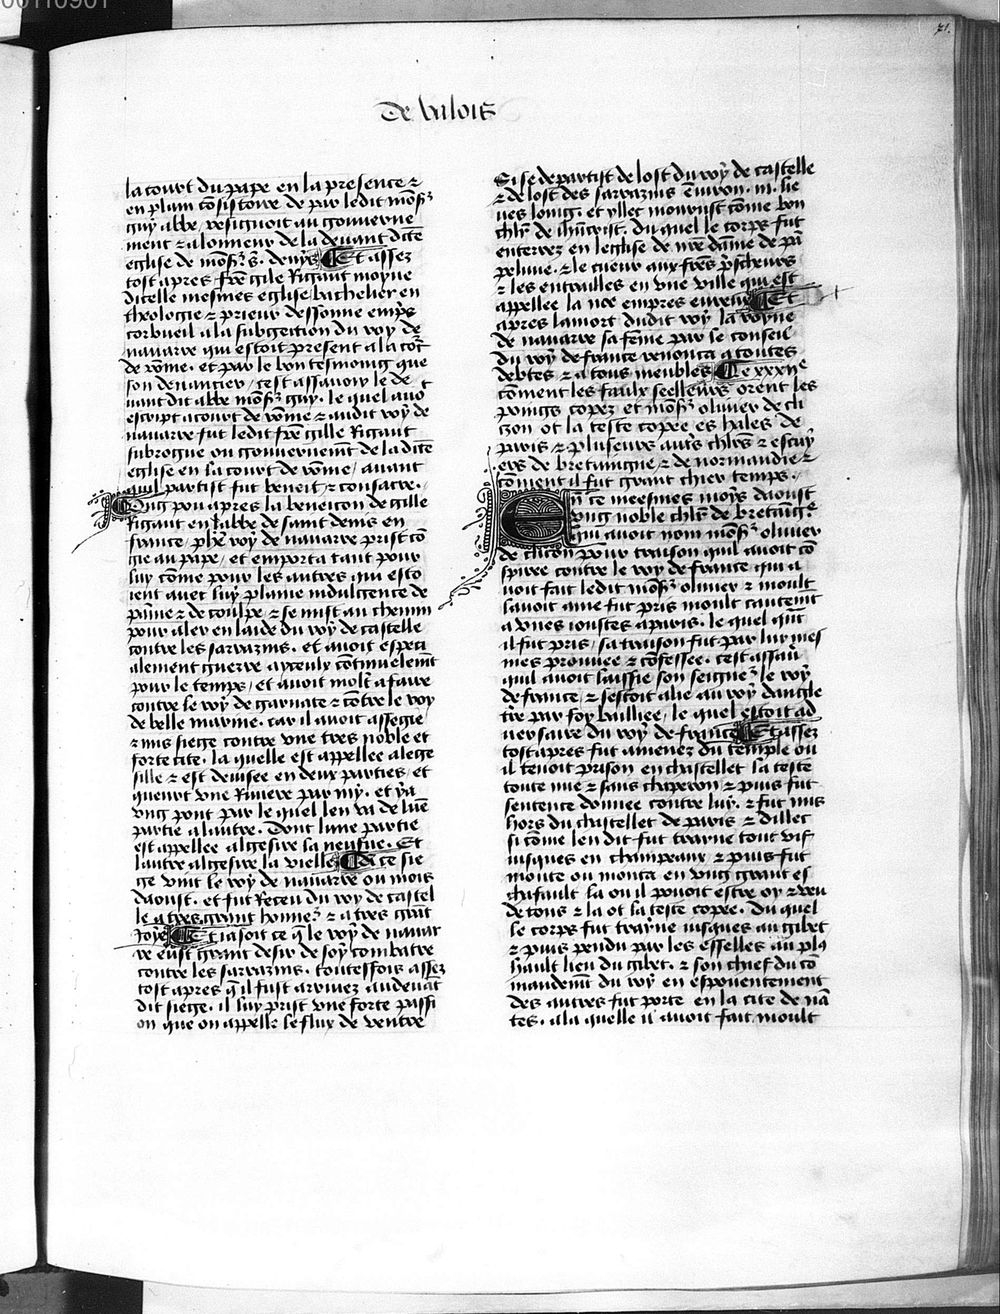 71.
de valois
la court du pape en la presence ⁊
en plain cõsistoire de par ledit mõsr
guy abbe, resignoit au gouverne
ment ⁊ a lonneur de la devant dicte
eglise de mõsr s. denys Et assez
tost apres fre gile Rigaut moyne
dicelle mesmes eglise bachelier en
theologie ⁊ prieur dessonne empres
corbueil a la subgection du roy de
navarre qui estoit present a la cort
de rõme. et par le bon tesmoing que
son devancier, cest assavoir le de
vant dit abbe mõsr guy. le quel avoit
escript a court de rõme ⁊ audit roy de
navarre fut ledit fre gille Rigaut
subrogue ou gouvernemt de la dicte
eglise en la court de rõme, avant
quil partist fut beneit ⁊ consacre.
Ung pou apres la beneicon de gille
Rigaut en labbe de saint denis en
france, phe roy de navarre prist cõ
gie au pape, et emporta tant pour
luy cõme pour les autres qui esto
ient avec luy plaine indulgence de
paine ⁊ de coulpe, ⁊ se mist au chemin
pour aler en laide du roy de castelle
contre les sarrazins. et avoit especi
alement guerre avec luy cõtinuelemt
pour le temps, et avoit molt a faire
contre le roy de garnate ⁊ cõtre le roy
de belle marine. car il avoit assegie
⁊ mis siege contre une tres noble et
forte cite. la quelle est appellee alege
sille ⁊ est devisee en deux parties, et
queurt une Riviere par my. et y a
ung pont par le quel len va de lune
partie a lautre. dont lune partie
est appellee algesire la neufue. Et
lautre algesire la vielle A ce sie
ge vint le roy de navarre ou mois
daoust. et fut Receu du roy de castel
le a tres grant honneur ⁊ a tres grãt
Joye Et ia soit ce q le roy de navar
re eust grant desir de soy combatre
contre les sarrazins. toutesfois assez
tost apres q il fust arrivez au devãt
dit siege. il luy prist une forte passi
on que on appelle le flux de ventre
Si se departist de lost du roy de castelle
⁊ de lost des sarrazins environ .iii. lie
ues loing. et yllec mourust cõme bon
chlr de ihucrist. du quel le corps fut
enterrez en leglise de nre dame de pã
pelune. ⁊ le cueur aux fres pscheurs
⁊ les entrailles en une ville qui est
appellee la nee empres evreux Et
apres la mort dudit roy la royne
de navarre sa fẽme par le conseil
du roy de france renonca a toutes
debtes ⁊ a tous meubles Le xxxne
cõment les faulx seelleurs orent les
poings copez et mõsr olivier de cli
con ot la teste copee es hales de
paris ⁊ plusieurs autres chlrs ⁊ escuy
ers de bretaingne ⁊ de normandie ⁊
cõment il fut grant chier temps.
En ce meesmes moys daoust
ung noble chlr de bretaigne
qui avoit nom mõsr olivier
de clicon pour traison quil avoit cõ
spiree contre le roy de france qui a
voit fait ledit mõsr olivier ⁊ moult
lavoit ame fut pris moult cautemt
a unes ioustes a paris. le quel qunt
il fut pris, sa traison fut par luy mes
mes prouvee ⁊ cõfessee. cest assavr
quil avoit laissie son seignr le roy
de france, ⁊ sestoit alie au roy dangle
tre par foy baillee, le quel estoit ad
versaire du roy de france Et assez
tost apres fut amenez du temple ou
il tenoit prison en chastellet la teste
toute nue ⁊ sans chaperon ⁊ puis fut
sentence donnee contre luy. ⁊ fut mis
hors du chastellet de paris ⁊ dillec
si cõme len dit fut trayne tout vif
iusques en champeaux ⁊ puis fut
monte ou monta en ung grant es
chafault la ou il pouoit estre oy ⁊ veu
de tous ⁊ la ot la teste copee. Du quel
le corps fut trayne iusques au gibet
⁊ puis pendu par les esselles au plus
hault lieu du gibet. ⁊ son chief du cõ
mandemt du roy en espoventement
des autres fut porte en la cite de nã
tes. a la quelle il avoit fait moult